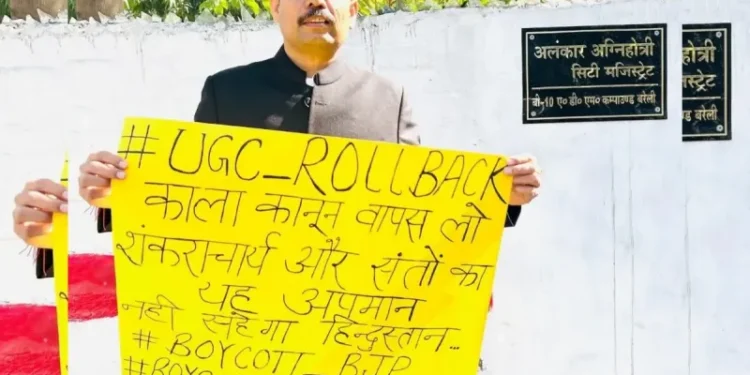 अलंकार अग्निहोत्री
सिटी मजिस्ट्रेट
बी-10 ए० डी० एम० कम्पाउण्ड बरेली
ग्निहोत्री
मजिस्ट्रेट
कम्पाउण्ड बरेली
#UGC_ROLLBACK
काला कानून वापस लो
शंकराचार्य और संतों का
यह अपमान
नही सहेगा हिन्दुस्तान...
#BOYCOTT_BJP